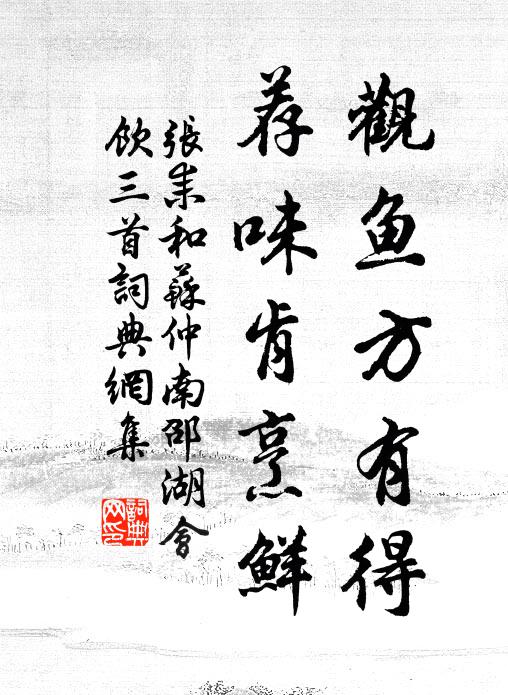 觀鱼方有得
荐味肯烹鮮
張耒和蘇仲南邵湖會
飲三首詞典網集
詞典
网印